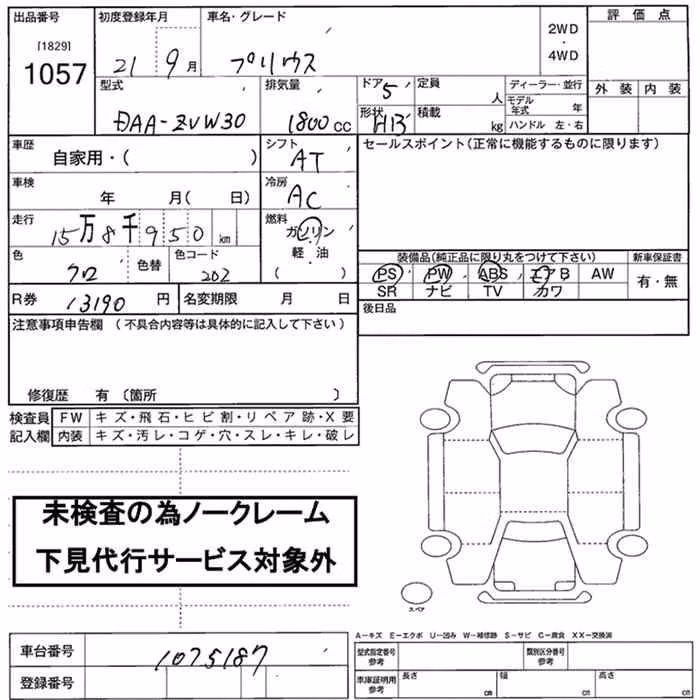 出品番号
[1829]
1057
初度登録年月
21 9月
車名・グレード
プリウス
2WD
・
4WD
評価点
外装 内装
型式
DAA-ZVW30
排気量
1800cc
ドア 5
形状 HB
定員 人
積載 kg
ディーラー・並行
モデル年式 年
ハンドル 左・右
車歴
自家用・( )
車検
年 月( 日)
走行
15万8千950km
色
クロ
色替
色コード
202
シフト
AT
冷房
AC
燃料
ガソリン
軽・油
( )
セールスポイント(正常に機能するものに限ります)
装備品(純正品に限り丸をつけて下さい)
新車保証書
PS PW ABS エアB AW
有・無
SR ナビ TV カワ
R券 13190円
名変期限 月 日
後日品
注意事項申告欄 (不具合内容等は具体的に記入して下さい)
修復歴 有 〔箇所 〕
検査員記入欄
FW キズ・飛石・ヒビ割・リペア跡・X要
内装 キズ・汚レ・コゲ・穴・スレ・キレ・破レ
未検査の為ノークレーム
下見代行サービス対象外
スペア
A-キズ E-エクボ U-凹み W-補修跡 S-サビ C-腐食 XX-交換済
車台番号
1075187
登録番号
型式指定番号
参考
類別区分番号
参考
車庫証明用
参考
長さ cm
幅 cm
高さ cm